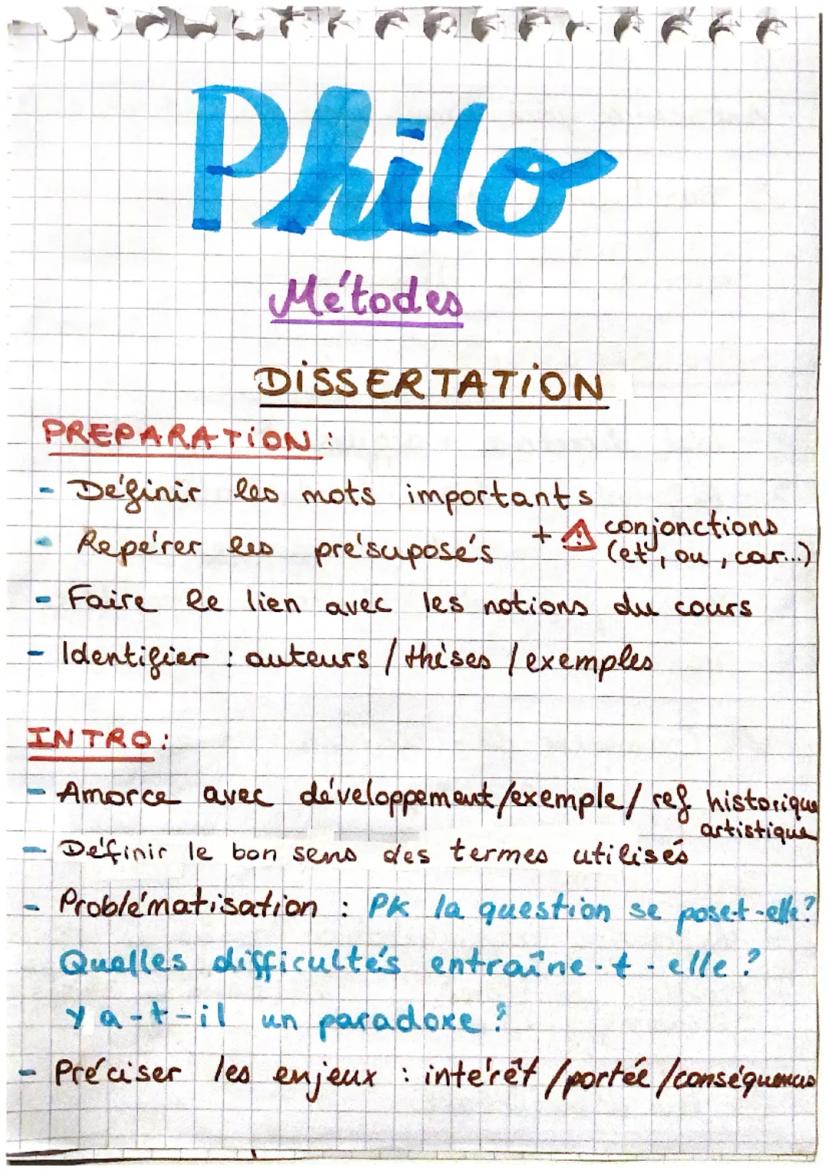 Philo
Métodes
DISSERTATION
PREPARATION :
- Définir les mots importants
- Repérer les présuposés + ⚠ conjonctions
(et, ou, car...)
- Faire le lien avec les notions du cours
- Identifier : auteurs / thèses / exemples
INTRO :
- Amorce avec développement/exemple/ ref historique
artistique
- Définir le bon sens des termes utilisés
- Problématisation : PK la question se poset-elle?
Quelles difficultés entraîne-t-elle?
y a-t-il un paradoxe?
- Préciser les enjeux : intérêt /portée /conséquences